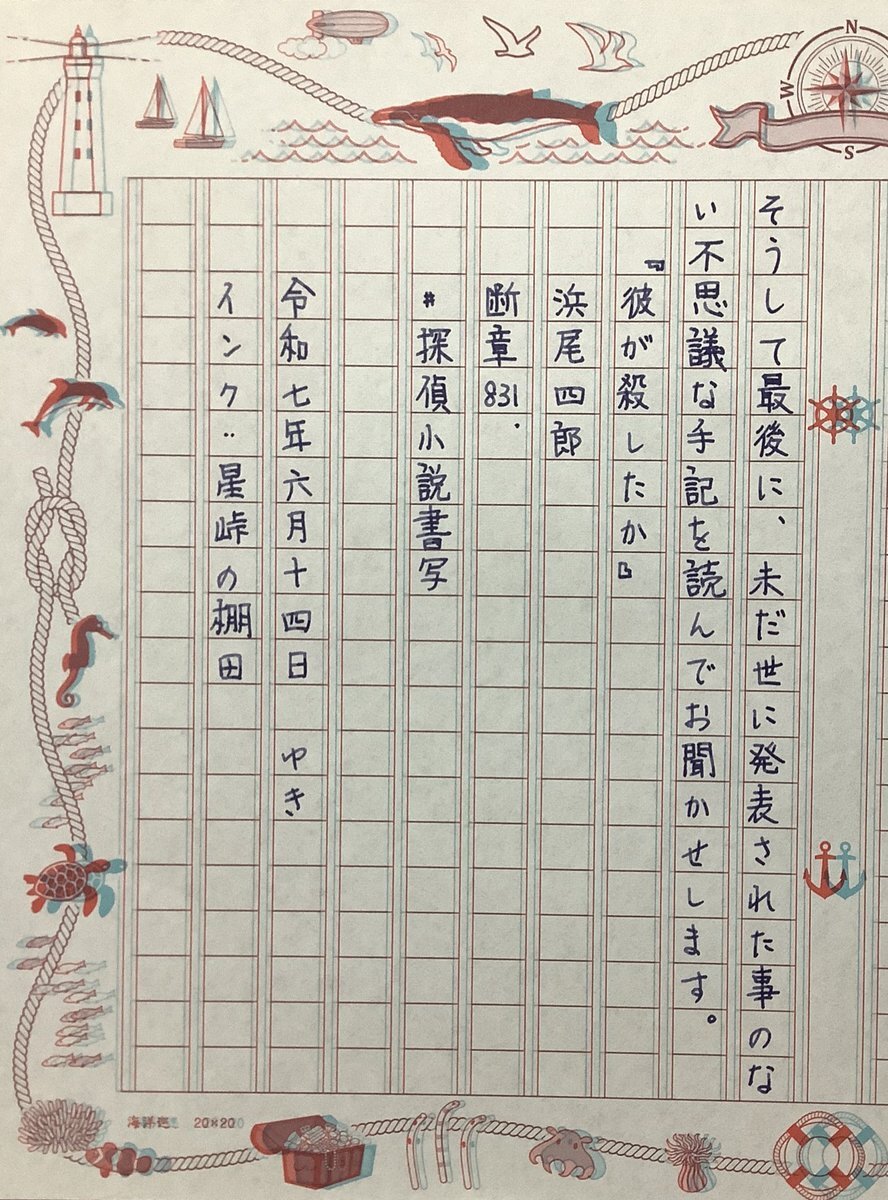 そうして最後に、未だ世に発表された事のな
い不思議な手記を読んでお聞かせします。
『彼が殺したか』
浜尾四郎
断章831.
#探偵小説書写
令和七年六月十四日 ゆき
インク:星峠の棚田
N
W
S
20×20